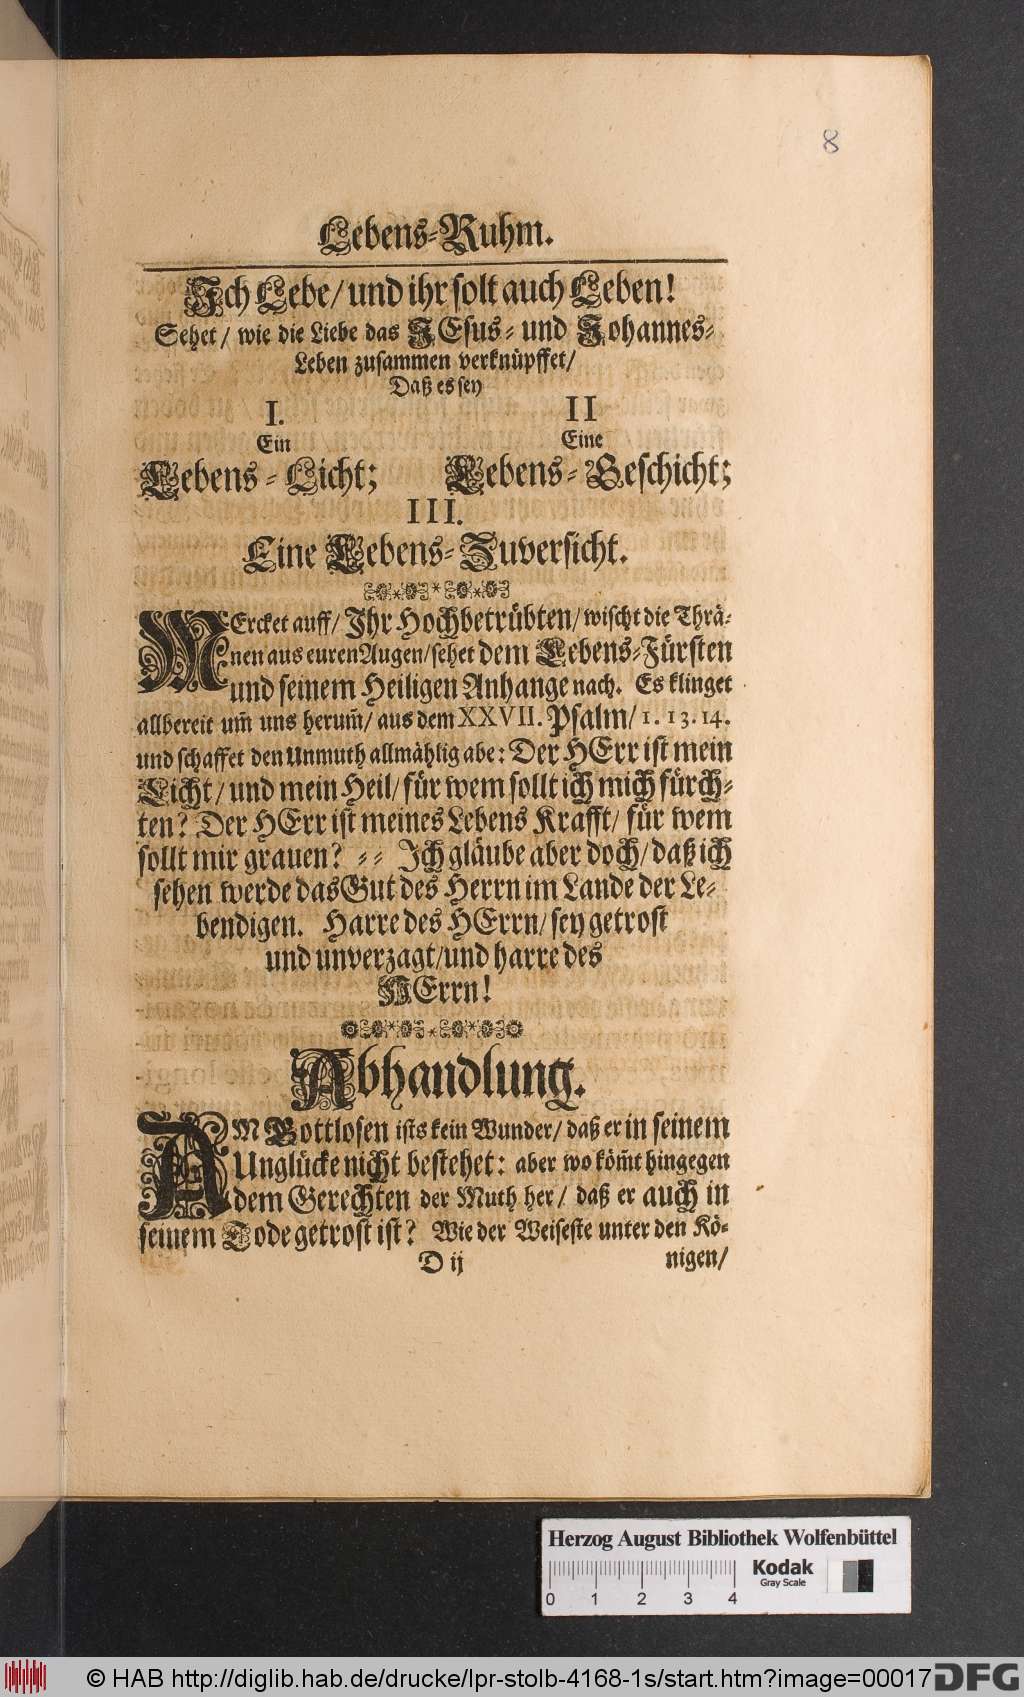 8
Lebens-Ruhm.
Ich Lebe/ und ihr solt auch Leben!
Sehet/ wie die Liebe das JEsus- und Johannes-
Leben zusammen verknüpffet/
Daß es sey
I. II
Ein Eine
Lebens-Licht; Lebens-Geschicht;
III.
Eine Lebens-Zuversicht.
MErcket auff/ Ihr Hochbetrübten/ wischt die Thrä-
nen aus euren Augen/ sehet dem Lebens-Fürsten
und seinem Heiligen Anhange nach. Es klinget
allbereit um̃ uns herum̃/ aus dem XXVII. Psalm/ 1. 13. 14.
und schaffet den Unmuth allmählig abe: Der HErr ist mein
Licht/ und mein Heil/ für wem sollt ich mich fürch-
ten? Der HErr ist meines Lebens Krafft/ für wem
sollt mir grauen? -- Ich gläube aber doch/ daß ich
sehen werde das Gut des Herrn im Lande der Le-
bendigen. Harre des HErrn/ sey getrost
und unverzagt/ und harre des
HErrn!
Abhandlung.
AM Gottlosen ists kein Wunder/ daß er in seinem
Unglücke nicht bestehet: aber wo köm̃t hingegen
dem Gerechten der Muth her/ daß er auch in
seinem Tode getrost ist? Wie der Weiseste unter den Kö-
D ij nigen/
Herzog August Bibliothek Wolfenbüttel
0 1 2 3 4
Kodak
Gray Scale
© HAB http://diglib.hab.de/drucke/lpr-stolb-4168-1s/start.htm?image=00017
DFG